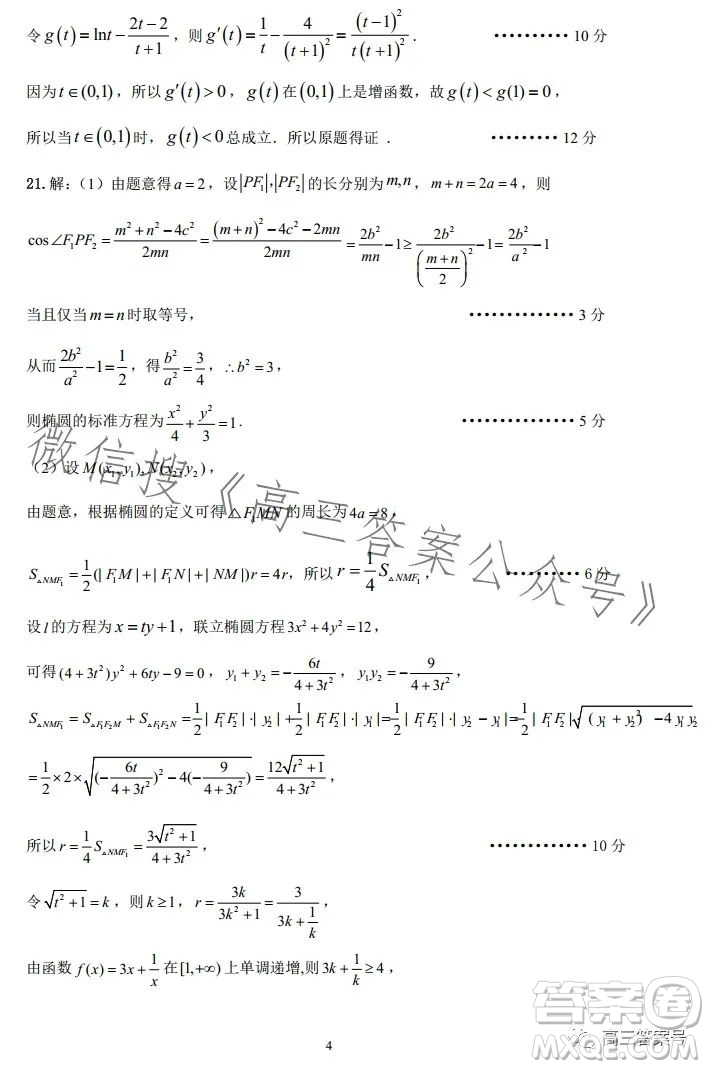 令 g(t)=lnt-\frac{2t-2}{t+1}，则 g′(t)=\frac{1}{t}-\frac{4}{(t+1)^2}=\frac{(t-1)^2}{t(t+1)^2}． ··········· 10 分
因为 t∈(0,1)，所以 g′(t)>0，g(t) 在 (0,1) 上是增函数，故 g(t)<g(1)=0，
所以当 t∈(0,1) 时，g(t)<0 总成立．所以原题得证 ． ·········· 12 分
21. 解：（1）由题意得 a=2，设 |PF_1|,|PF_2| 的长分别为 m,n，m+n=2a=4，则
cos∠F_1PF_2=\frac{m^2+n^2-4c^2}{2mn}=\frac{(m+n)^2-4c^2-2mn}{2mn}=\frac{2b^2}{mn}-1≥\frac{2b^2}{(\frac{m+n}{2})^2}-1=\frac{2b^2}{a^2}-1
当且仅当 m=n 时取等号， ·············· 3 分
从而 \frac{2b^2}{a^2}-1=\frac{1}{2}，得 \frac{b^2}{a^2}=\frac{3}{4}，∴b^2=3，
则椭圆的标准方程为 \frac{x^2}{4}+\frac{y^2}{3}=1． ··············· 5 分
（2）设 M(x_1,y_1),N(x_2,y_2)，
由题意，根据椭圆的定义可得 △F_1MN 的周长为 4a=8，
S_{△NMF_1}=\frac{1}{2}(|F_1M|+|F_1N|+|NM|)r=4r，所以 r=\frac{1}{4}S_{△NMF_1}， ·········· 6 分
设 l 的方程为 x=ty+1，联立椭圆方程 3x^2+4y^2=12，
可得 (4+3t^2)y^2+6ty-9=0，y_1+y_2=-\frac{6t}{4+3t^2}，y_1y_2=-\frac{9}{4+3t^2}，
S_{△NMF_1}=S_{△F_1F_2M}+S_{△F_1F_2N}=\frac{1}{2}|F_1F_2|·|y_2|+\frac{1}{2}|F_1F_2|·|y_1|=\frac{1}{2}|F_1F_2|·|y_2-y_1|=\frac{1}{2}|F_1F_2|\sqrt{(y_1+y_2)^2-4y_1y_2}
=\frac{1}{2}×2×\sqrt{(-\frac{6t}{4+3t^2})^2-4(-\frac{9}{4+3t^2})}=\frac{12\sqrt{t^2+1}}{4+3t^2}，
所以 r=\frac{1}{4}S_{△NMF_1}=\frac{3\sqrt{t^2+1}}{4+3t^2}， ·············· 10 分
令 \sqrt{t^2+1}=k，则 k≥1，r=\frac{3k}{3k^2+1}=\frac{3}{3k+\frac{1}{k}}，
由函数 f(x)=3x+\frac{1}{x} 在 [1,+∞) 上单调递增,则 3k+\frac{1}{k}≥4，
4
微信搜《高三答案公众号》
高三答案号
答案圈
MXQE.COM